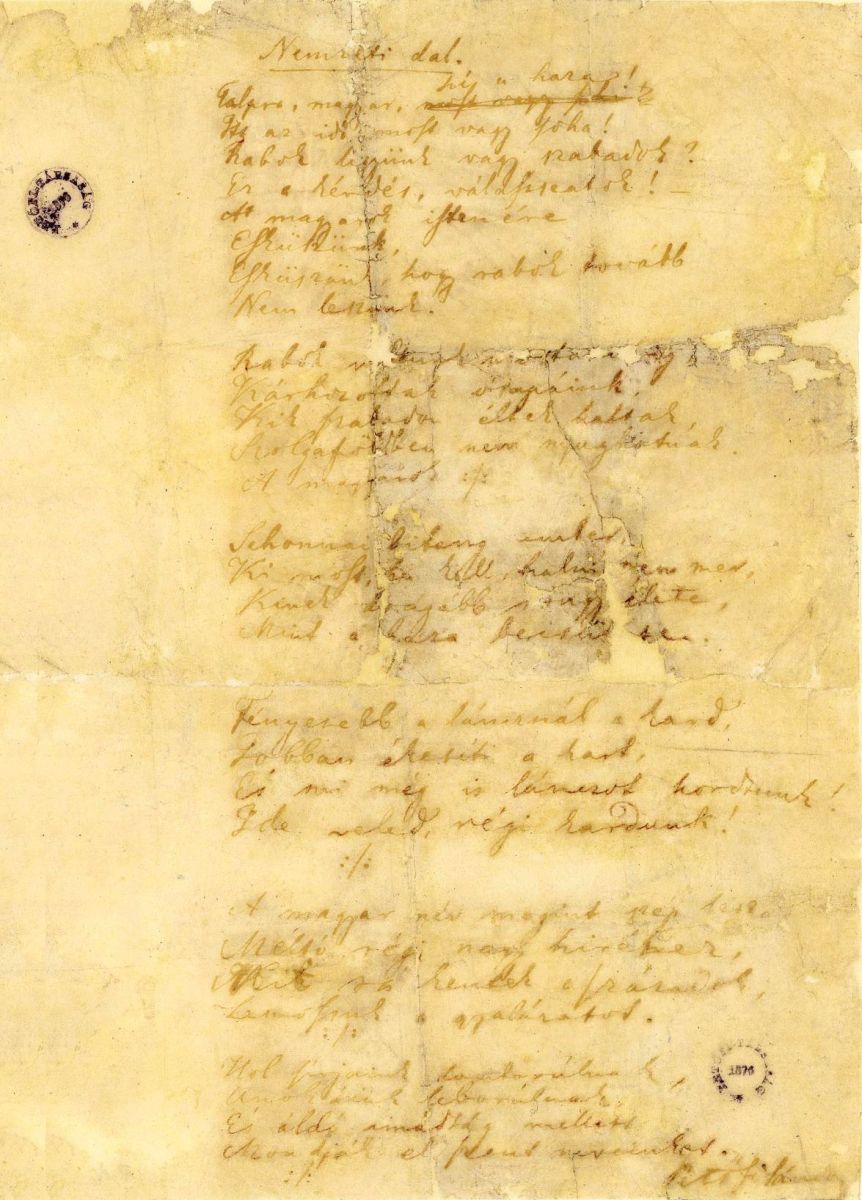 Nemzeti dal.
hí a haza!
Talpra, magyar, most vagy soha!
Itt az idő, most vagy soha!
Rabok legyünk vagy szabadok?
Ez a kérdés, válasszatok! —
A magyarok istenére
Esküszünk,
Esküszünk, hogy rabok tovább
Nem leszünk.
Rabok voltunk mostanáig
Kárhozottak ősapáink,
Kik szabadon éltek haltak,
Szolgaföldben nem nyughatnak.
A magyarok :/:
Sehonnai bitang ember,
Ki most, ha kell, halni nem mer,
Kinek drágább rongy élete,
Mint a haza becsülete.
Fényesebb a láncznál a kard,
Jobban ékesíti a kart,
És mi még is lánczot hordtunk!
Ide veled, régi kardunk!
:/:
A magyar név megint szép lesz
Méltó régi nagy hiréhez,
Mit rá kentek a századok,
Lemossuk a gyalázatot.
:/:
Hol sírjaink domborulnak,
Unokáink leborulnak,
És áldó imádság mellett
Mondják el szent neveinket.
:/:
Petőfi Sándor
PETŐFI-TÁRSASÁG 1876
PETŐFI-TÁRSASÁG 1876